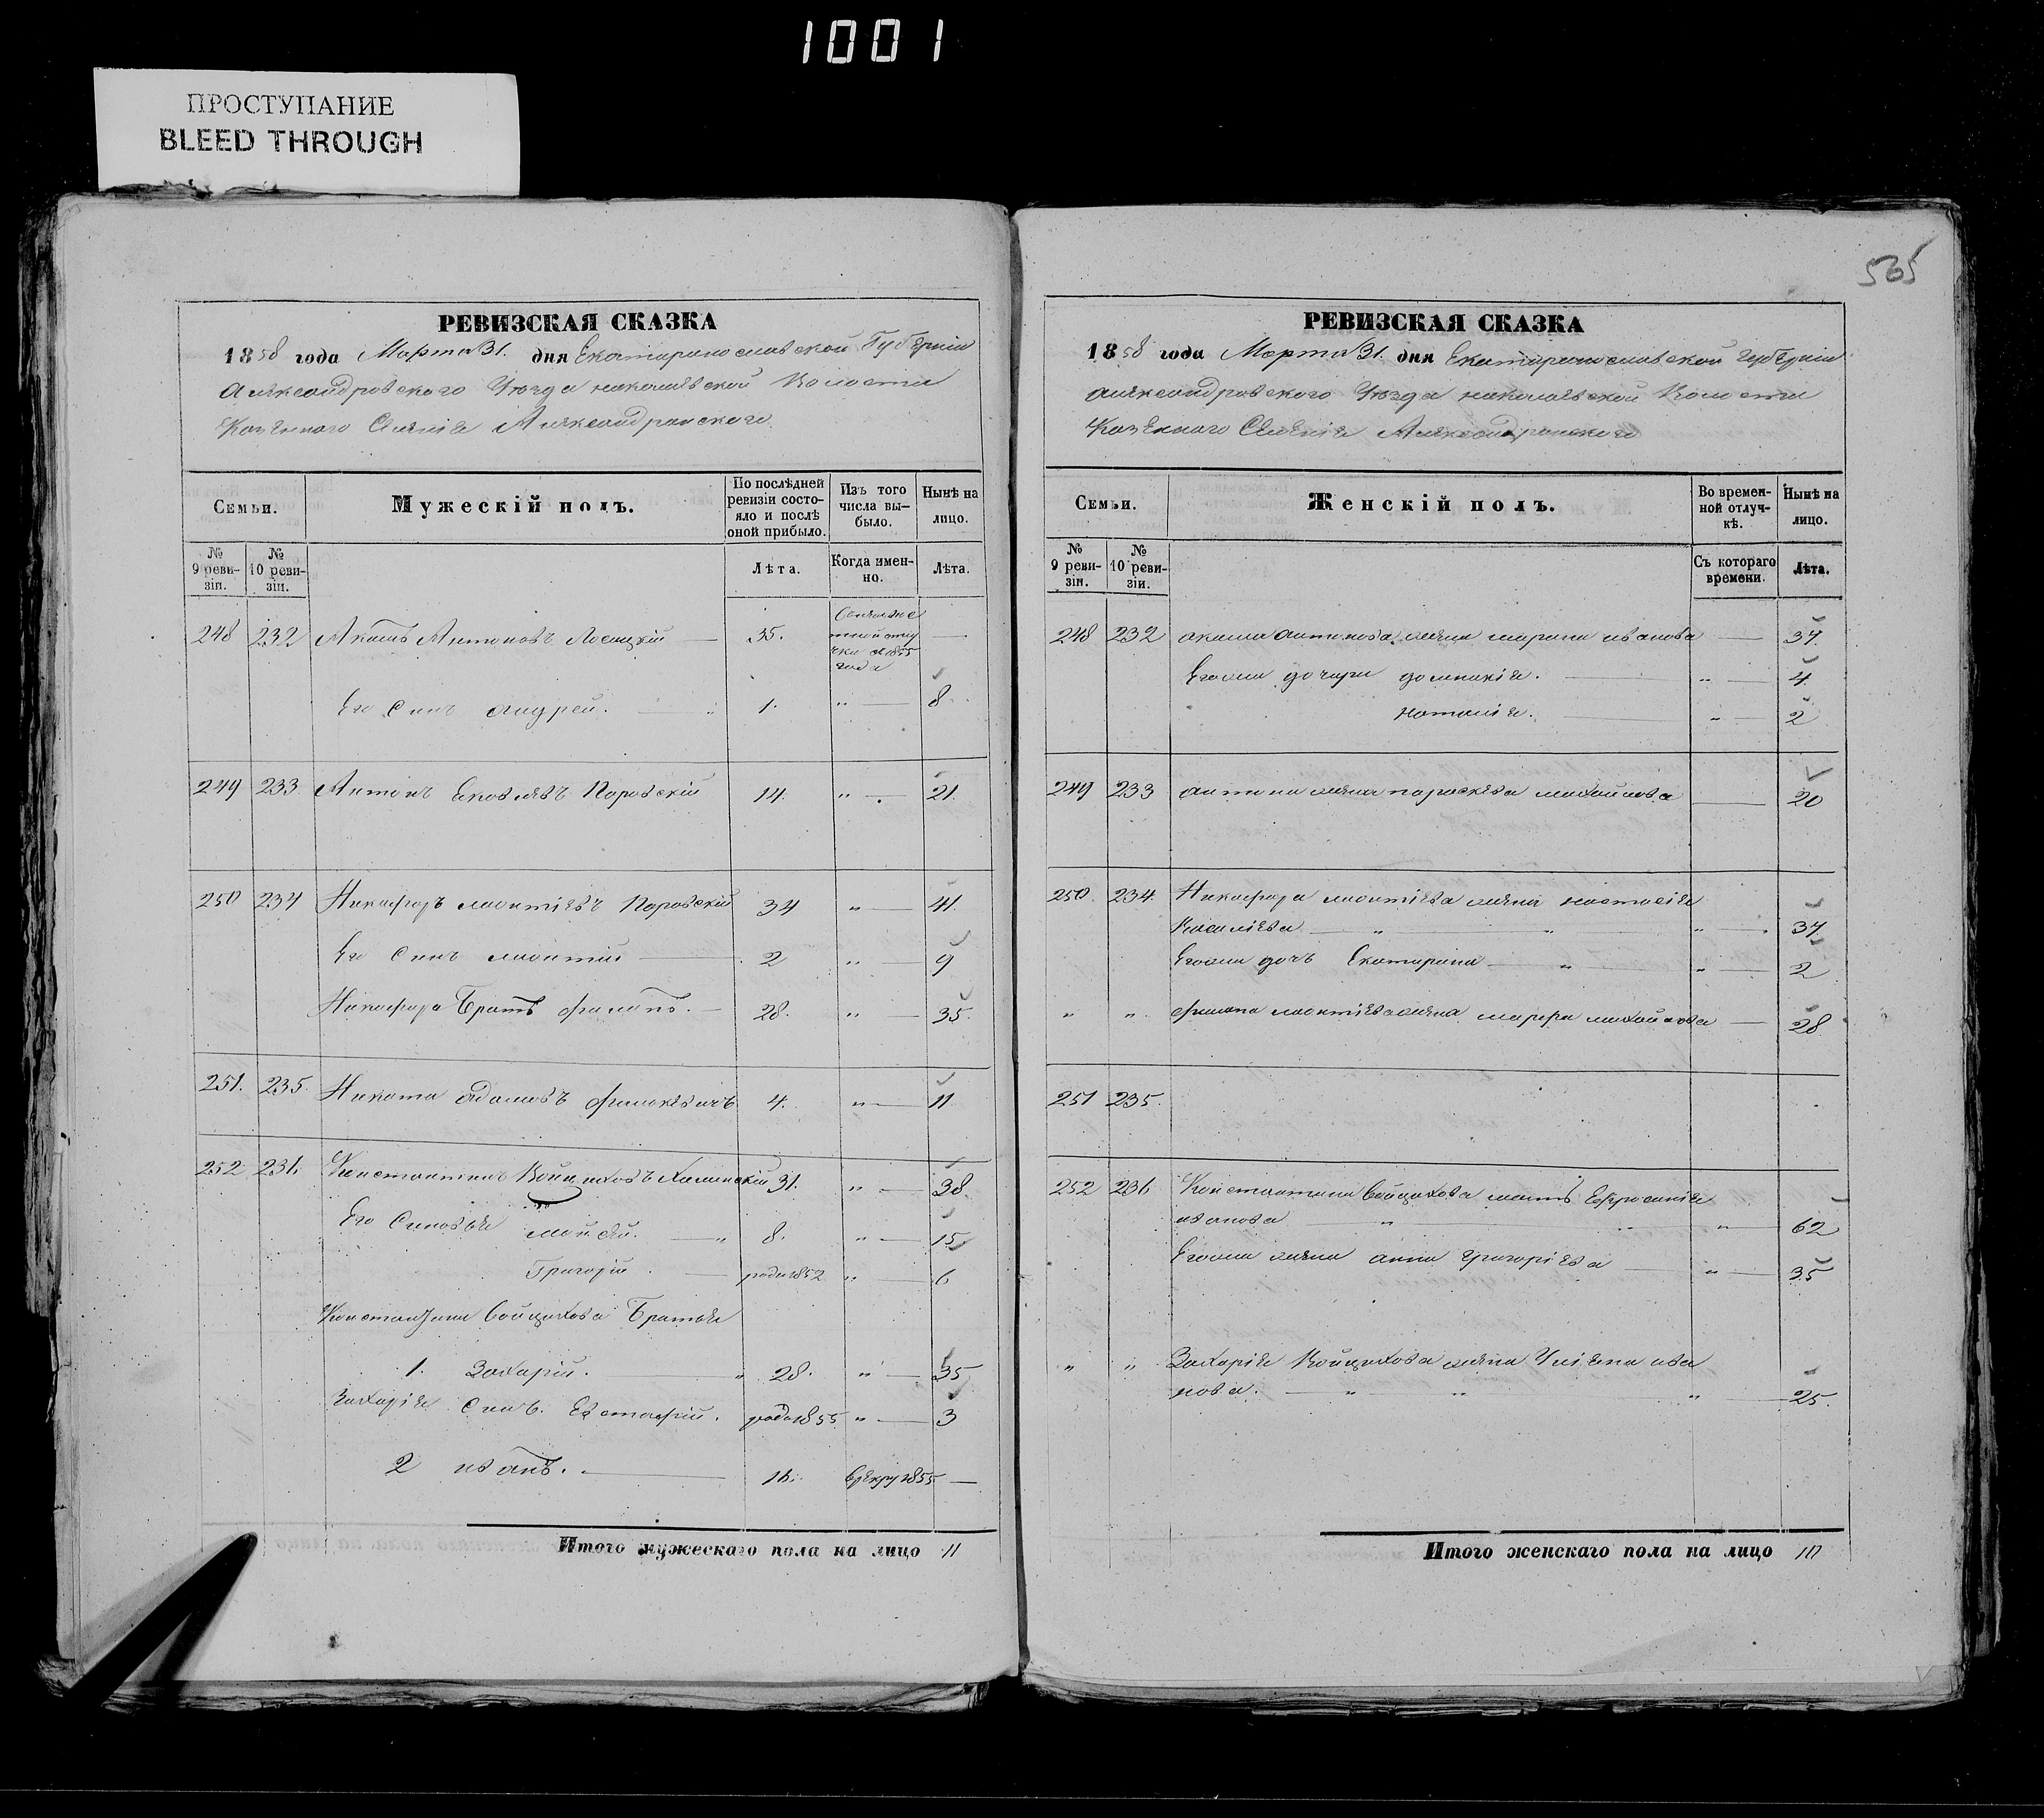 1001
ПРОСТУПАНИЕ
BLEED THROUGH
РЕВИЗСКАЯ СКАЗКА
1858 года Марта 31. дня Екатеринославской Губерніи
Александровского Уезда николаевской Волости
Казенного Селенія Александровского
Семьи.
Мужескій полъ.
По послѣдней ревизіи состояло и послѣ оной прибыло.
Изъ того числа выбыло.
Нынѣ на лицо.
№ 9 ревизіи.
№ 10 ревизіи.
Лѣта.
Когда именно.
Лѣта.
248 232 Антоновъ 35. 1855 года —
Его Сынъ андрей. 1. " — 8
249 233 Антонъ Яковлевъ Поровскій 14. " — 21.
250 234 Никифоръ леонтіевъ Поровскій 34 " — 41.
Его Сынъ леонтій — 2 " — 9
Никифора Братъ филипъ. — 28. " — 35.
251. 235. Никита адамовъ 4. " — 11
252 236 Константинъ Войциховъ 31. " — 38.
Его Сыновья мойсей. " 8. " — 15
Григорій. — роди 1852 " — 6
Константина Войцихова Братья
1. Захарій. " 28. " — 35
Захарія Синъ. Евстафій. роди 1855 " — 3
2 иванъ. — 16. 1855 —
Итого мужескаго пола на лицо 11
565
РЕВИЗСКАЯ СКАЗКА
1858 года Марта 31. дня Екатеринославской Губерніи
александровского Уезда николаевской Волости
Казенного Селенія Александровского
Семьи.
Женскій полъ.
Во временной отлучкѣ.
Нынѣ на лицо.
№ 9 ревизіи.
№ 10 ревизіи.
Съ котораго времени.
Лѣта.
248 232 антонова жена марина иванова — 37.
Егожа дочери доминикія. — " — 4
наталія. — " — 2
249 233 антона жена параскева михайлова — 20
250. 234. Никифора леонтіева жена настасія
Василіева — " " " — 37.
Егожа дочь Екатерина — " " — 2
" " филипа леонтіева жена марфа михайлова — 28
251 235.
252 236 Константина Войцихова мать Ефросинія
иванова " " " — 62
Егожа жена анна григоріева — " — 35
" " Захарія Войцихова жена Уліяна ива
нова. — " " " — 25.
Итого женскаго пола на лицо 10